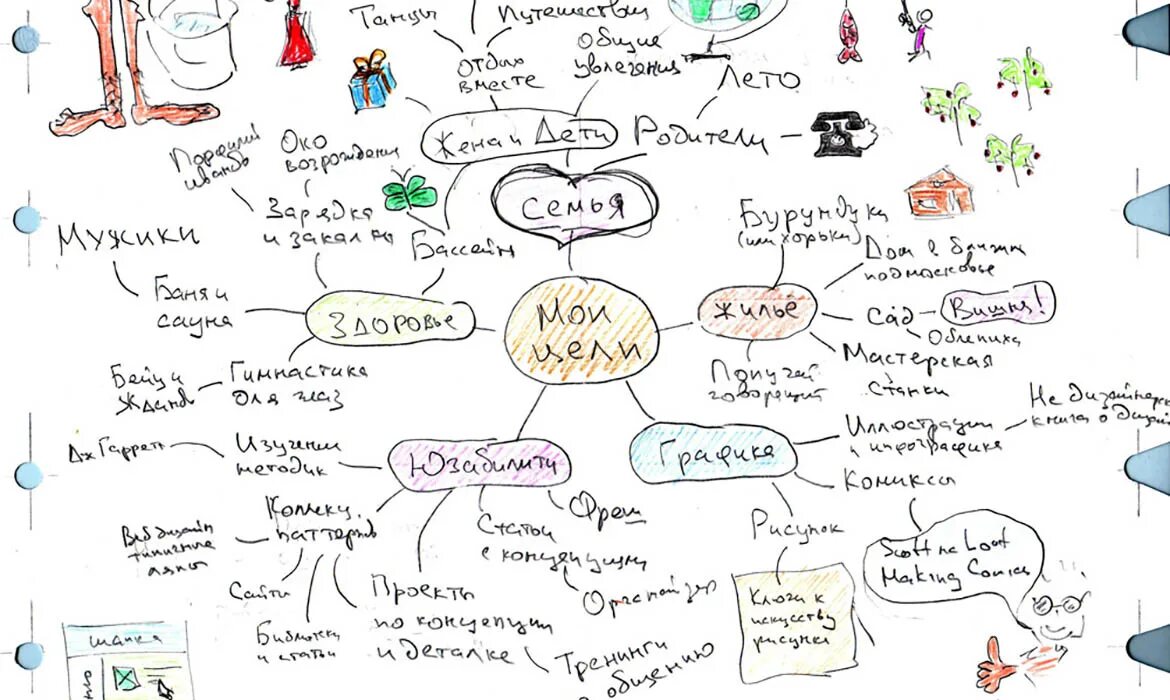 Танцы
Путешествия
Отдых
вместе
Общие
увлечения
Лето
Жена и Дети
Родители
семья
Око
возрождения
Зарядка
и закалка
Бассейн
Мужики
Баня и
сауна
Здоровье
Гимнастика
для глаз
Бейц и
Жданов
Мои
цели
Жилье
Бурундуки
(или хорьки)
Дом в ближн
подмосковье
Сад
Вишня!
Облепиха
Мастерская
Станки
Попугай
говорящий
Графика
Иллюстрации
и инфографика
Не дизайнерск
книга о дизай
Комиксы
Scott Mc Loot
Making Comics
Рисунок
Ключи к
искусству
рисунка
Юзабилити
Изучение
методик
Дж Гарретт
Коллекц.
паттернов
Веб дизайн
типичные
ляпы
Сайты
Библиотеки
и статьи
Проекты
по концепции
и деталке
Статьи
с концепциями
Фреш
Органайзер
Тренинги
общению
шапка